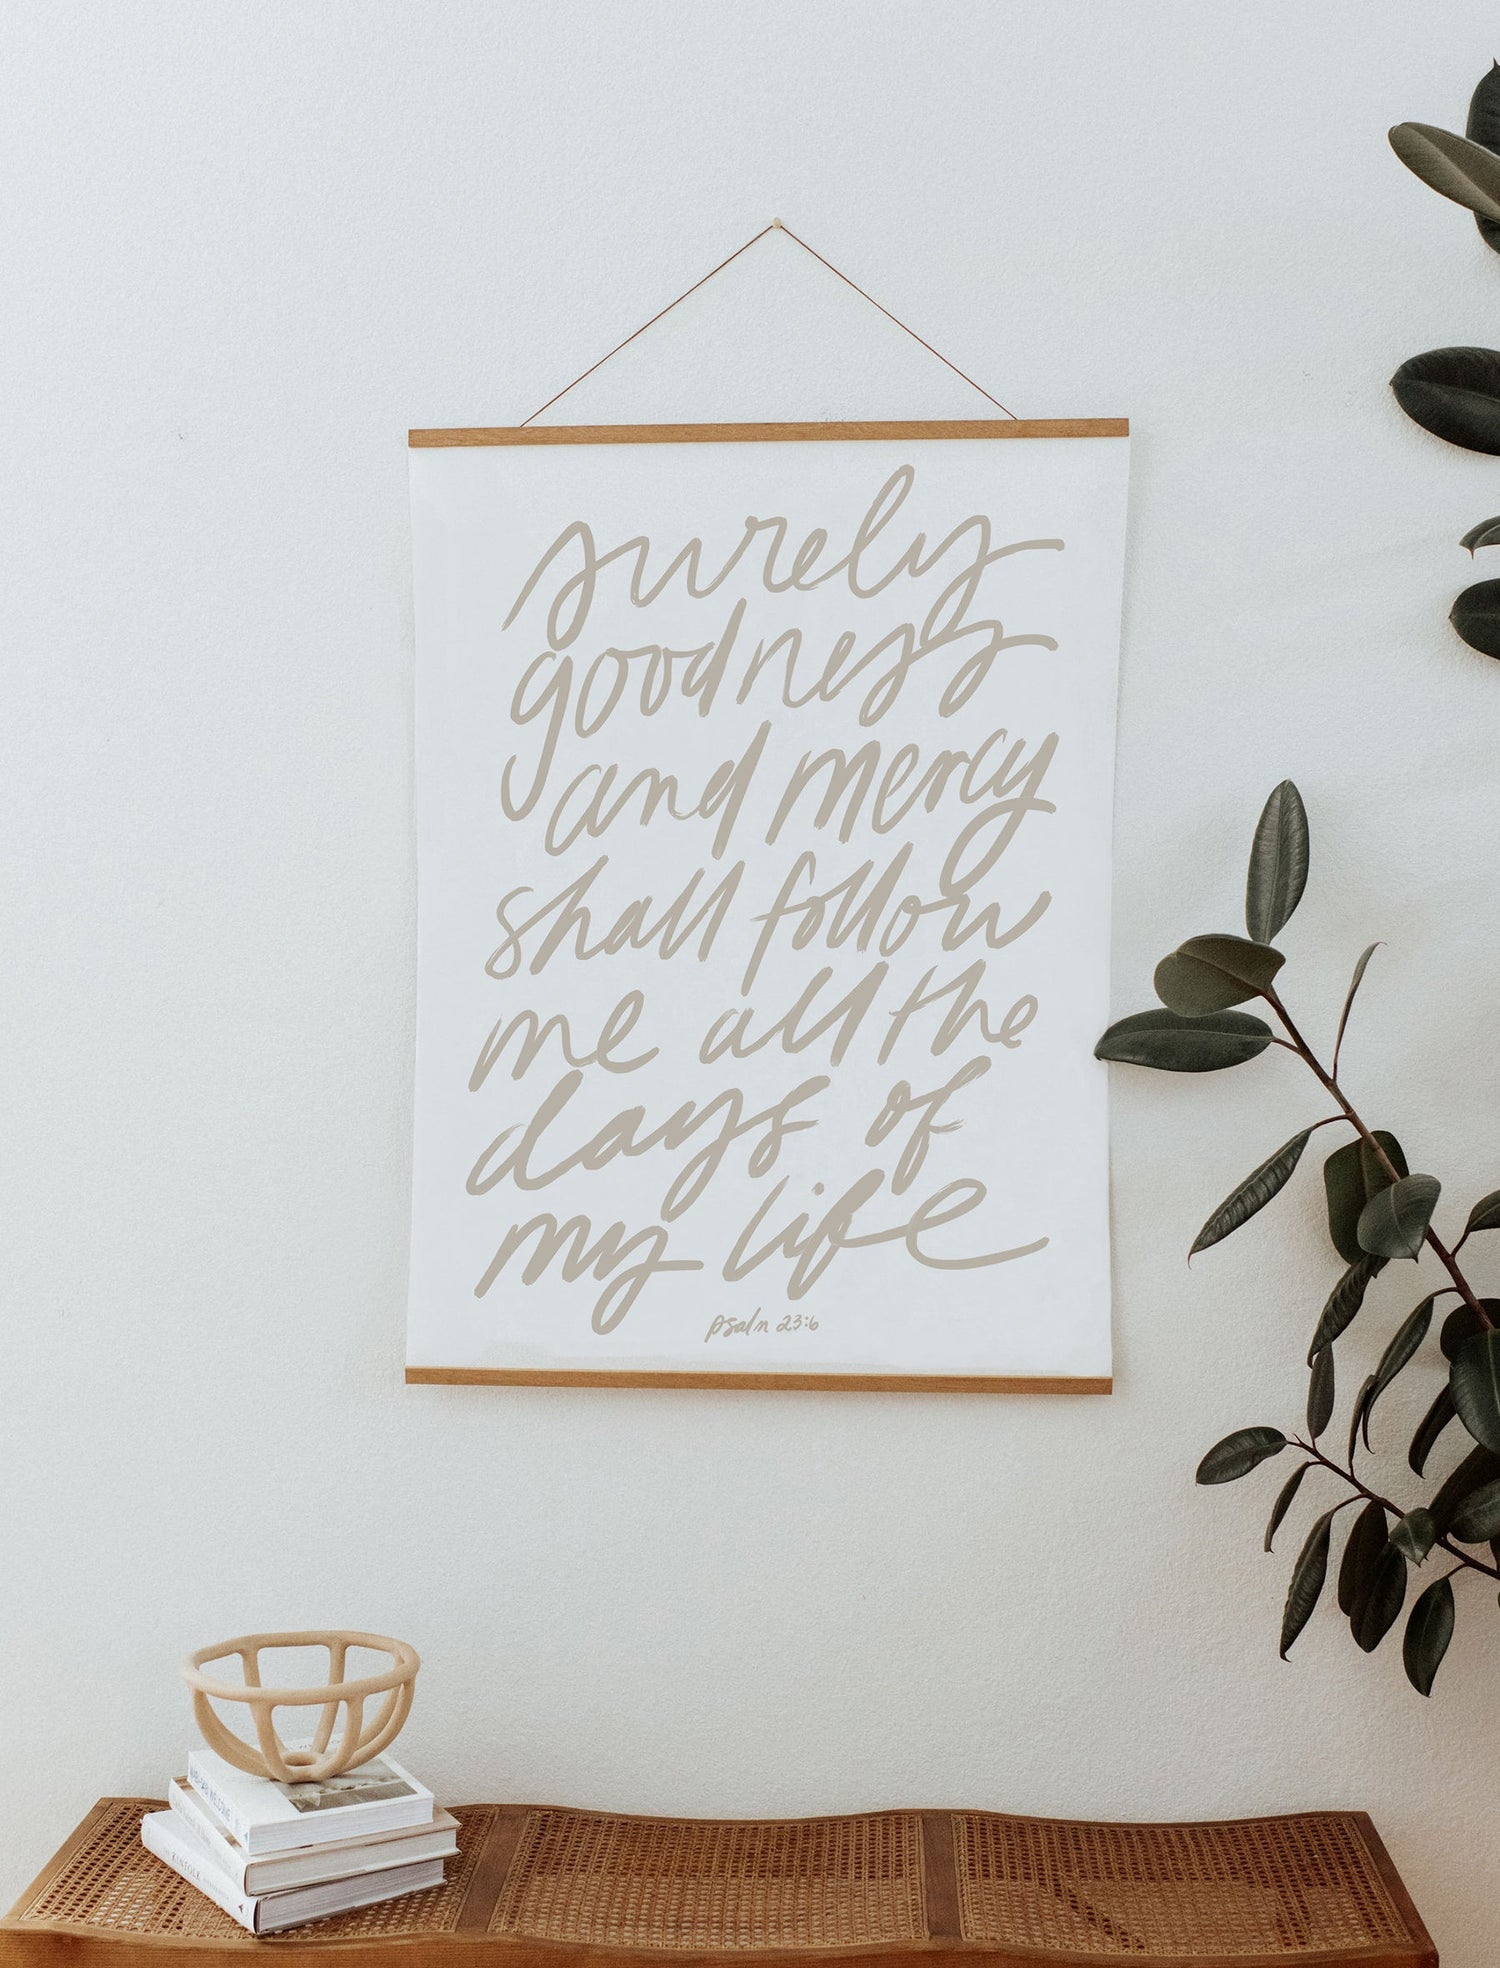 surely
goodness
and mercy
shall follow
me all the
days of
my life
psalm 23:6
WABI-SABI WELCOME
KINFOLK